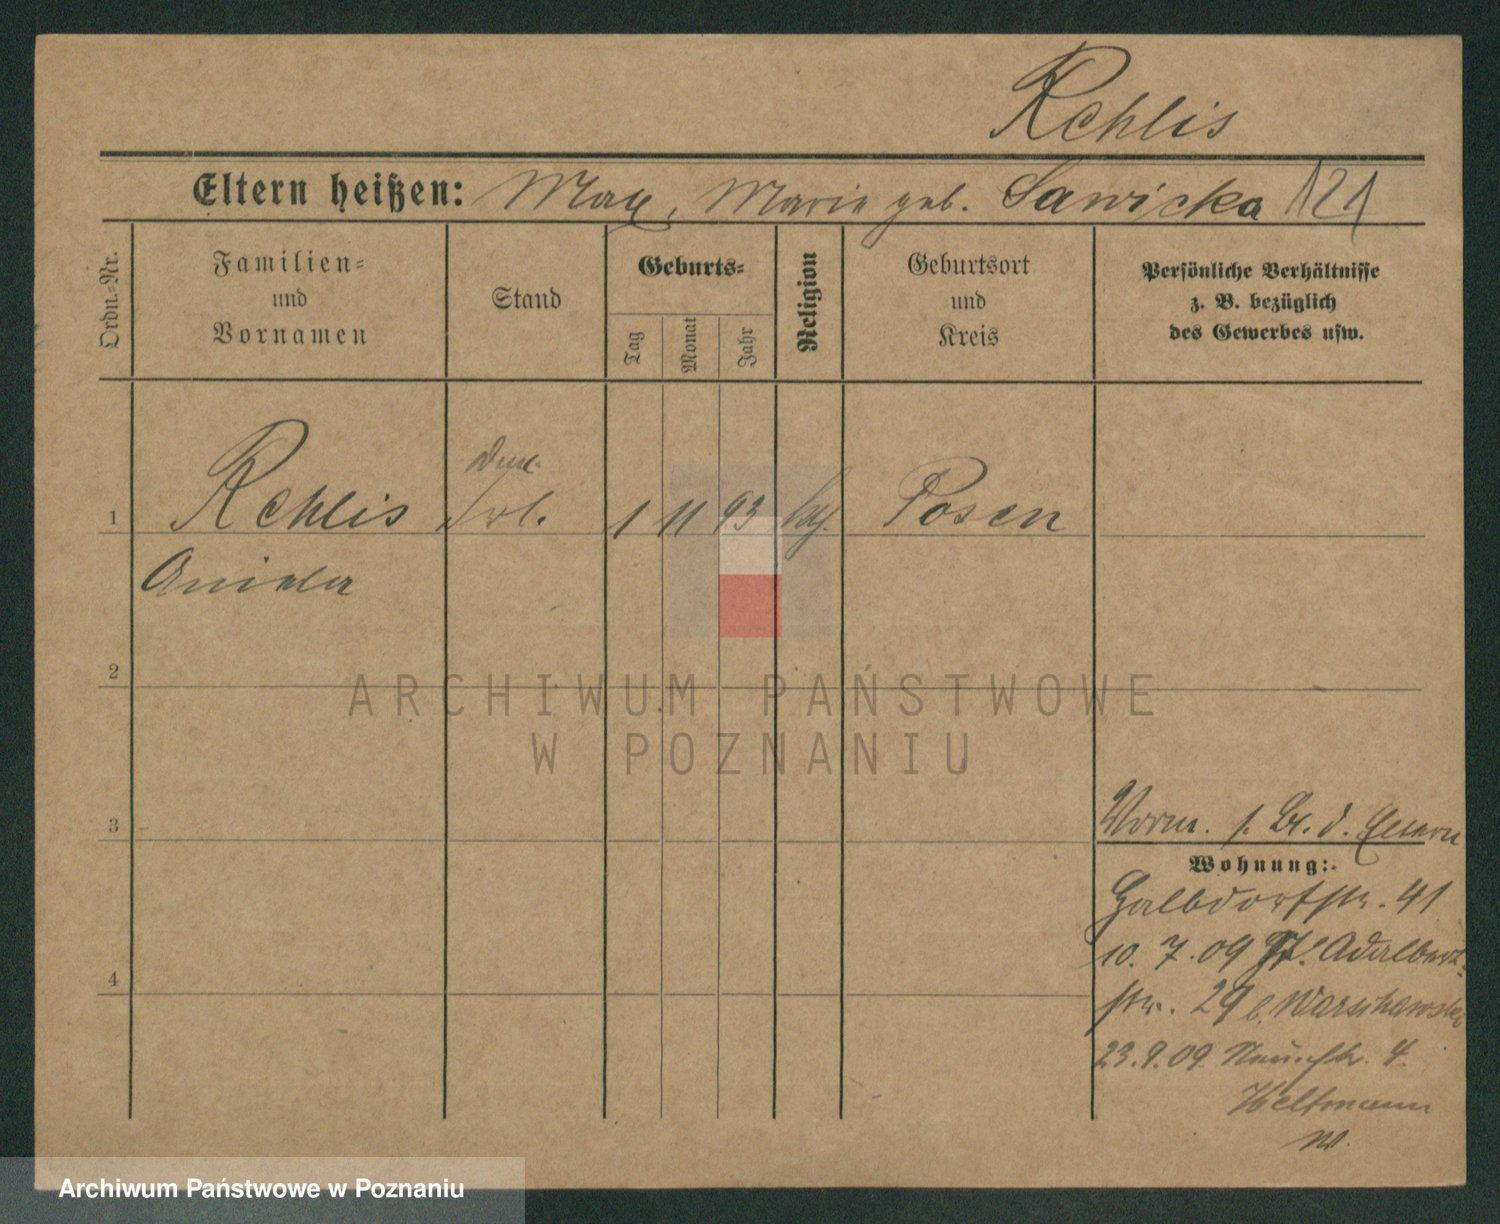 Rehlis
Eltern heißen: Max, Marie geb. Sawicka 121
Ordn.-Nr.
Familien-
und
Vornamen
Stand
Geburts-
Tag
Monat
Jahr
Religion
Geburtsort
und
Kreis
Persönliche Verhältnisse
z. B. bezüglich
des Gewerbes usw.
1 Rehlis Frl. 1 11 93 Posen
2
3
4
ARCHIWUM PAŃSTWOWE
W POZNANIU
Vorm. s. d. Eltern
Wohnung:
Halbdorfstr. 41
10. 7. 09 Adalbert-
str. 29 b. Warschawski
23. 9. 09 4
Heltmann
Archiwum Państwowe w Poznaniu